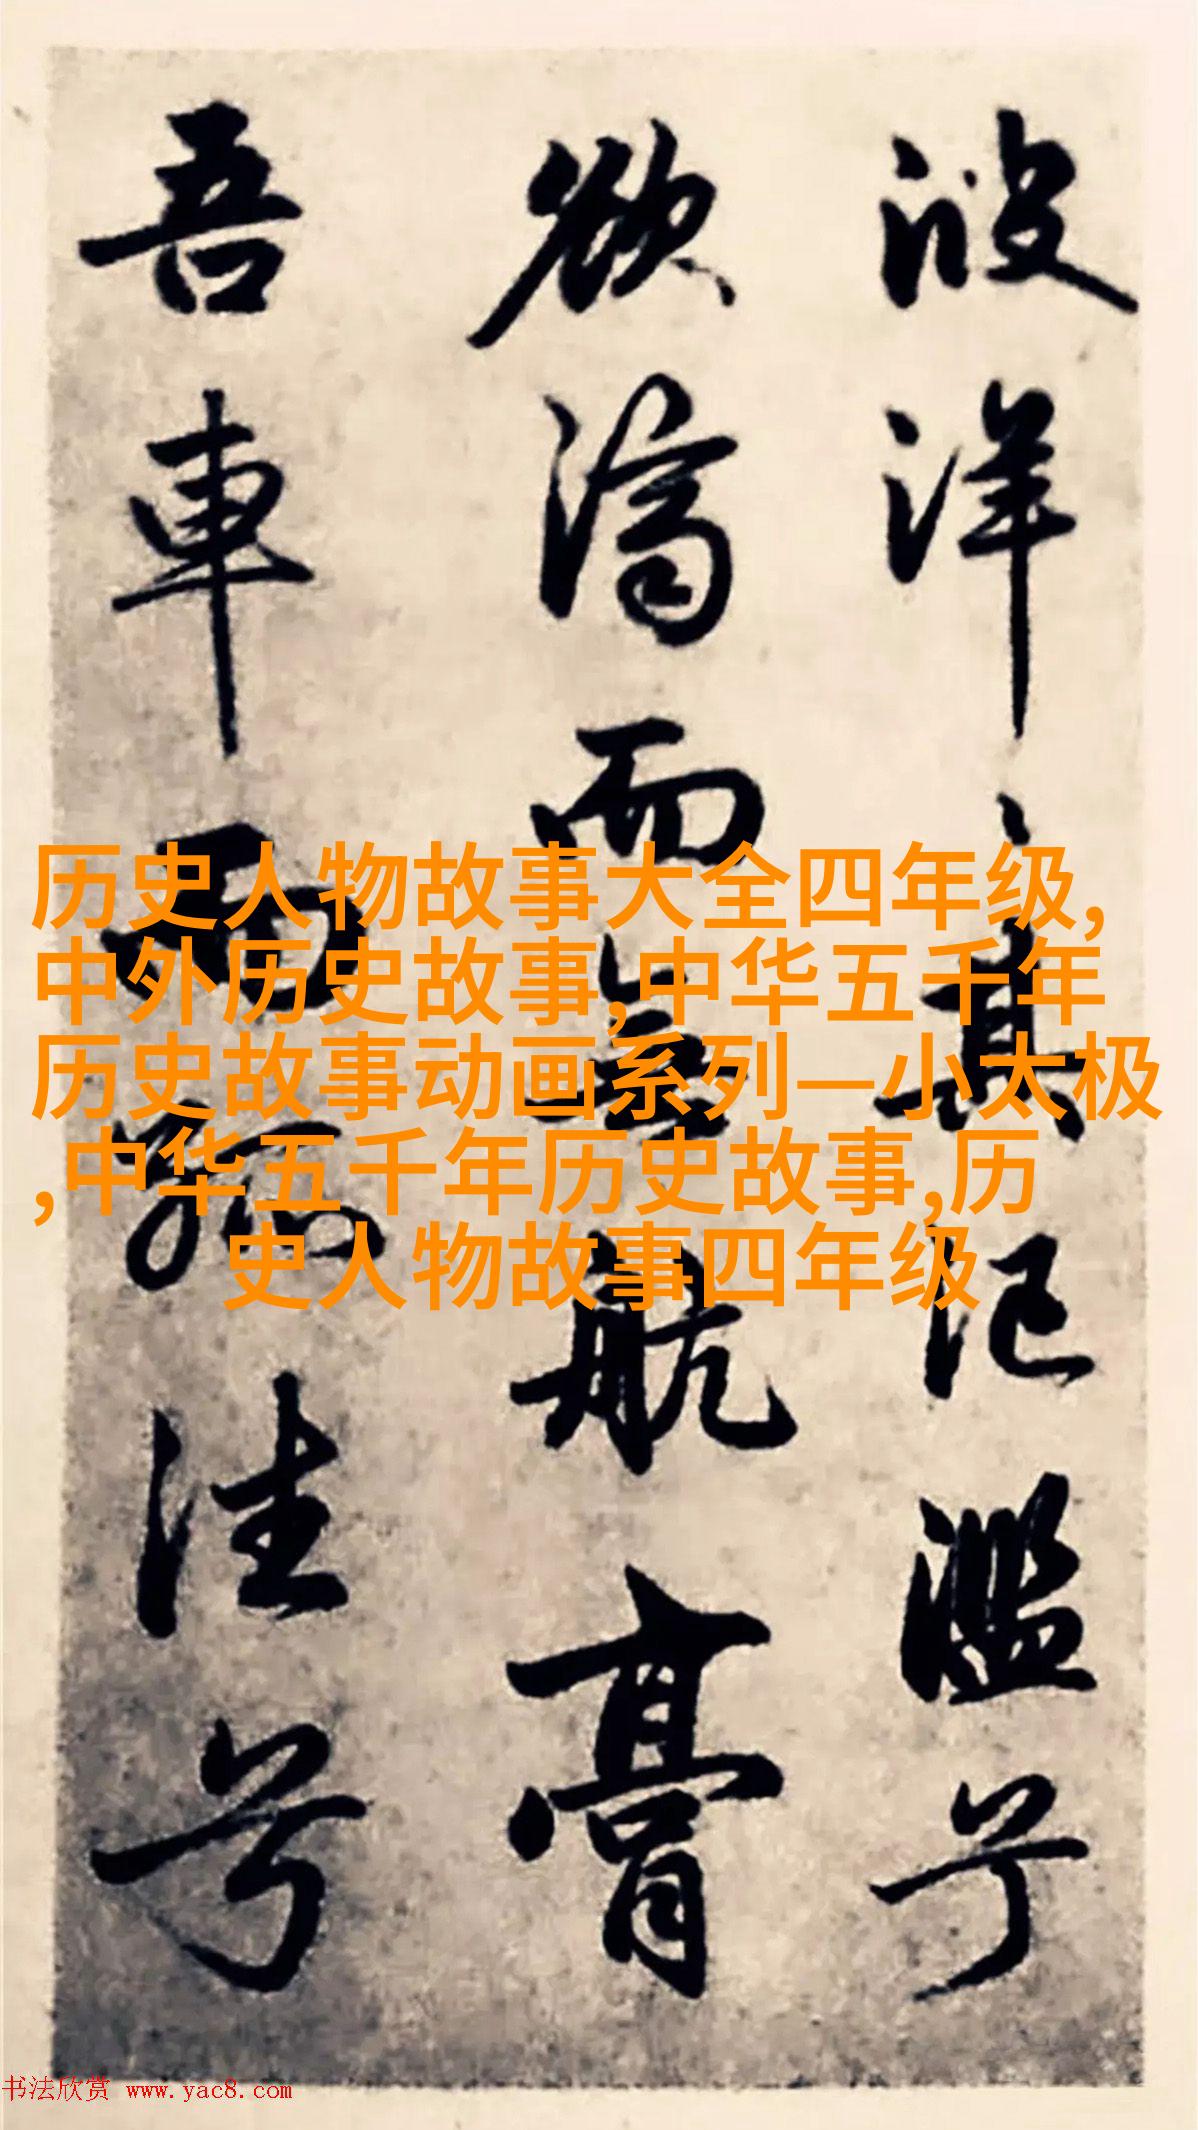 波洋其氾濫兮
欲濟而無航膏
吾車兮
历史人物故事大全四年级,
中外历史故事,中华五千年
历史故事动画系列—小太极
,中华五千年历史故事,历
史人物故事四年级
书法欣赏 www.yac8.com